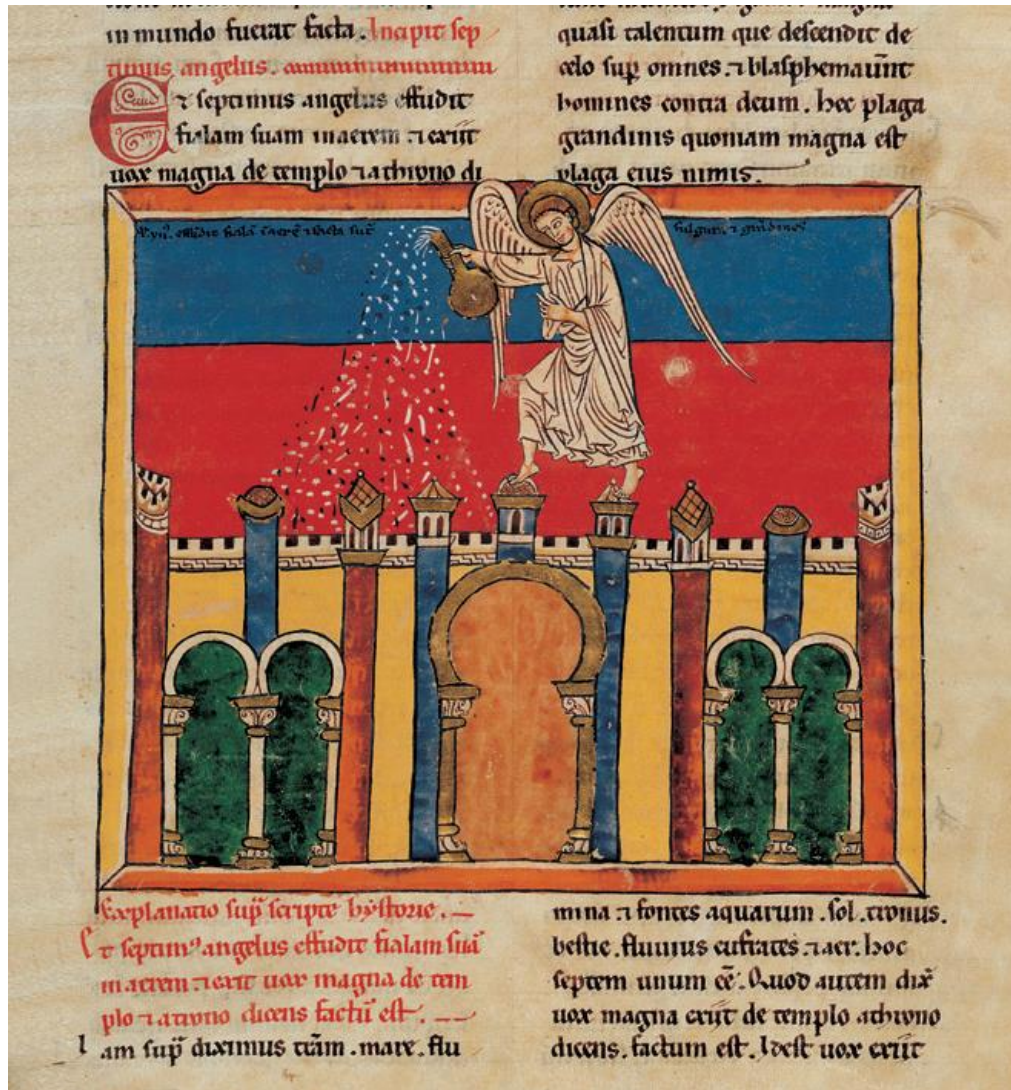 in mundo fuerat facta. Incipit sep
timus angelus.
Et septimus angelus effudit
fialam suam in aerem ⁊ exiit
uox magna de templo ⁊ a throno di
quasi talentum que descendit de
celo sup̄ omnes. ⁊ blasphemauer̄t
homines contra deum. hec plaga
grandinis quoniam magna est
plaga eius nimis.
effudit fialā facta sūt
fulgura ⁊ grandines
Explanatio sup̄ scripte hystorie.
Et septimꝰ angelus effudit fialam suā
in aerem ⁊ exiit uox magna de tem
plo ⁊ a trono dicens factū est.
Iam sup̄ diximus terrā. mare. flu
mina ⁊ fontes aquarum. sol. tronus.
bestie. fluuius eufrates. ⁊ aer. hoc
septem unum eē. Quod autem dix̄
uox magna exiit de templo a throno
dicens. factum est. Idest uox exiit